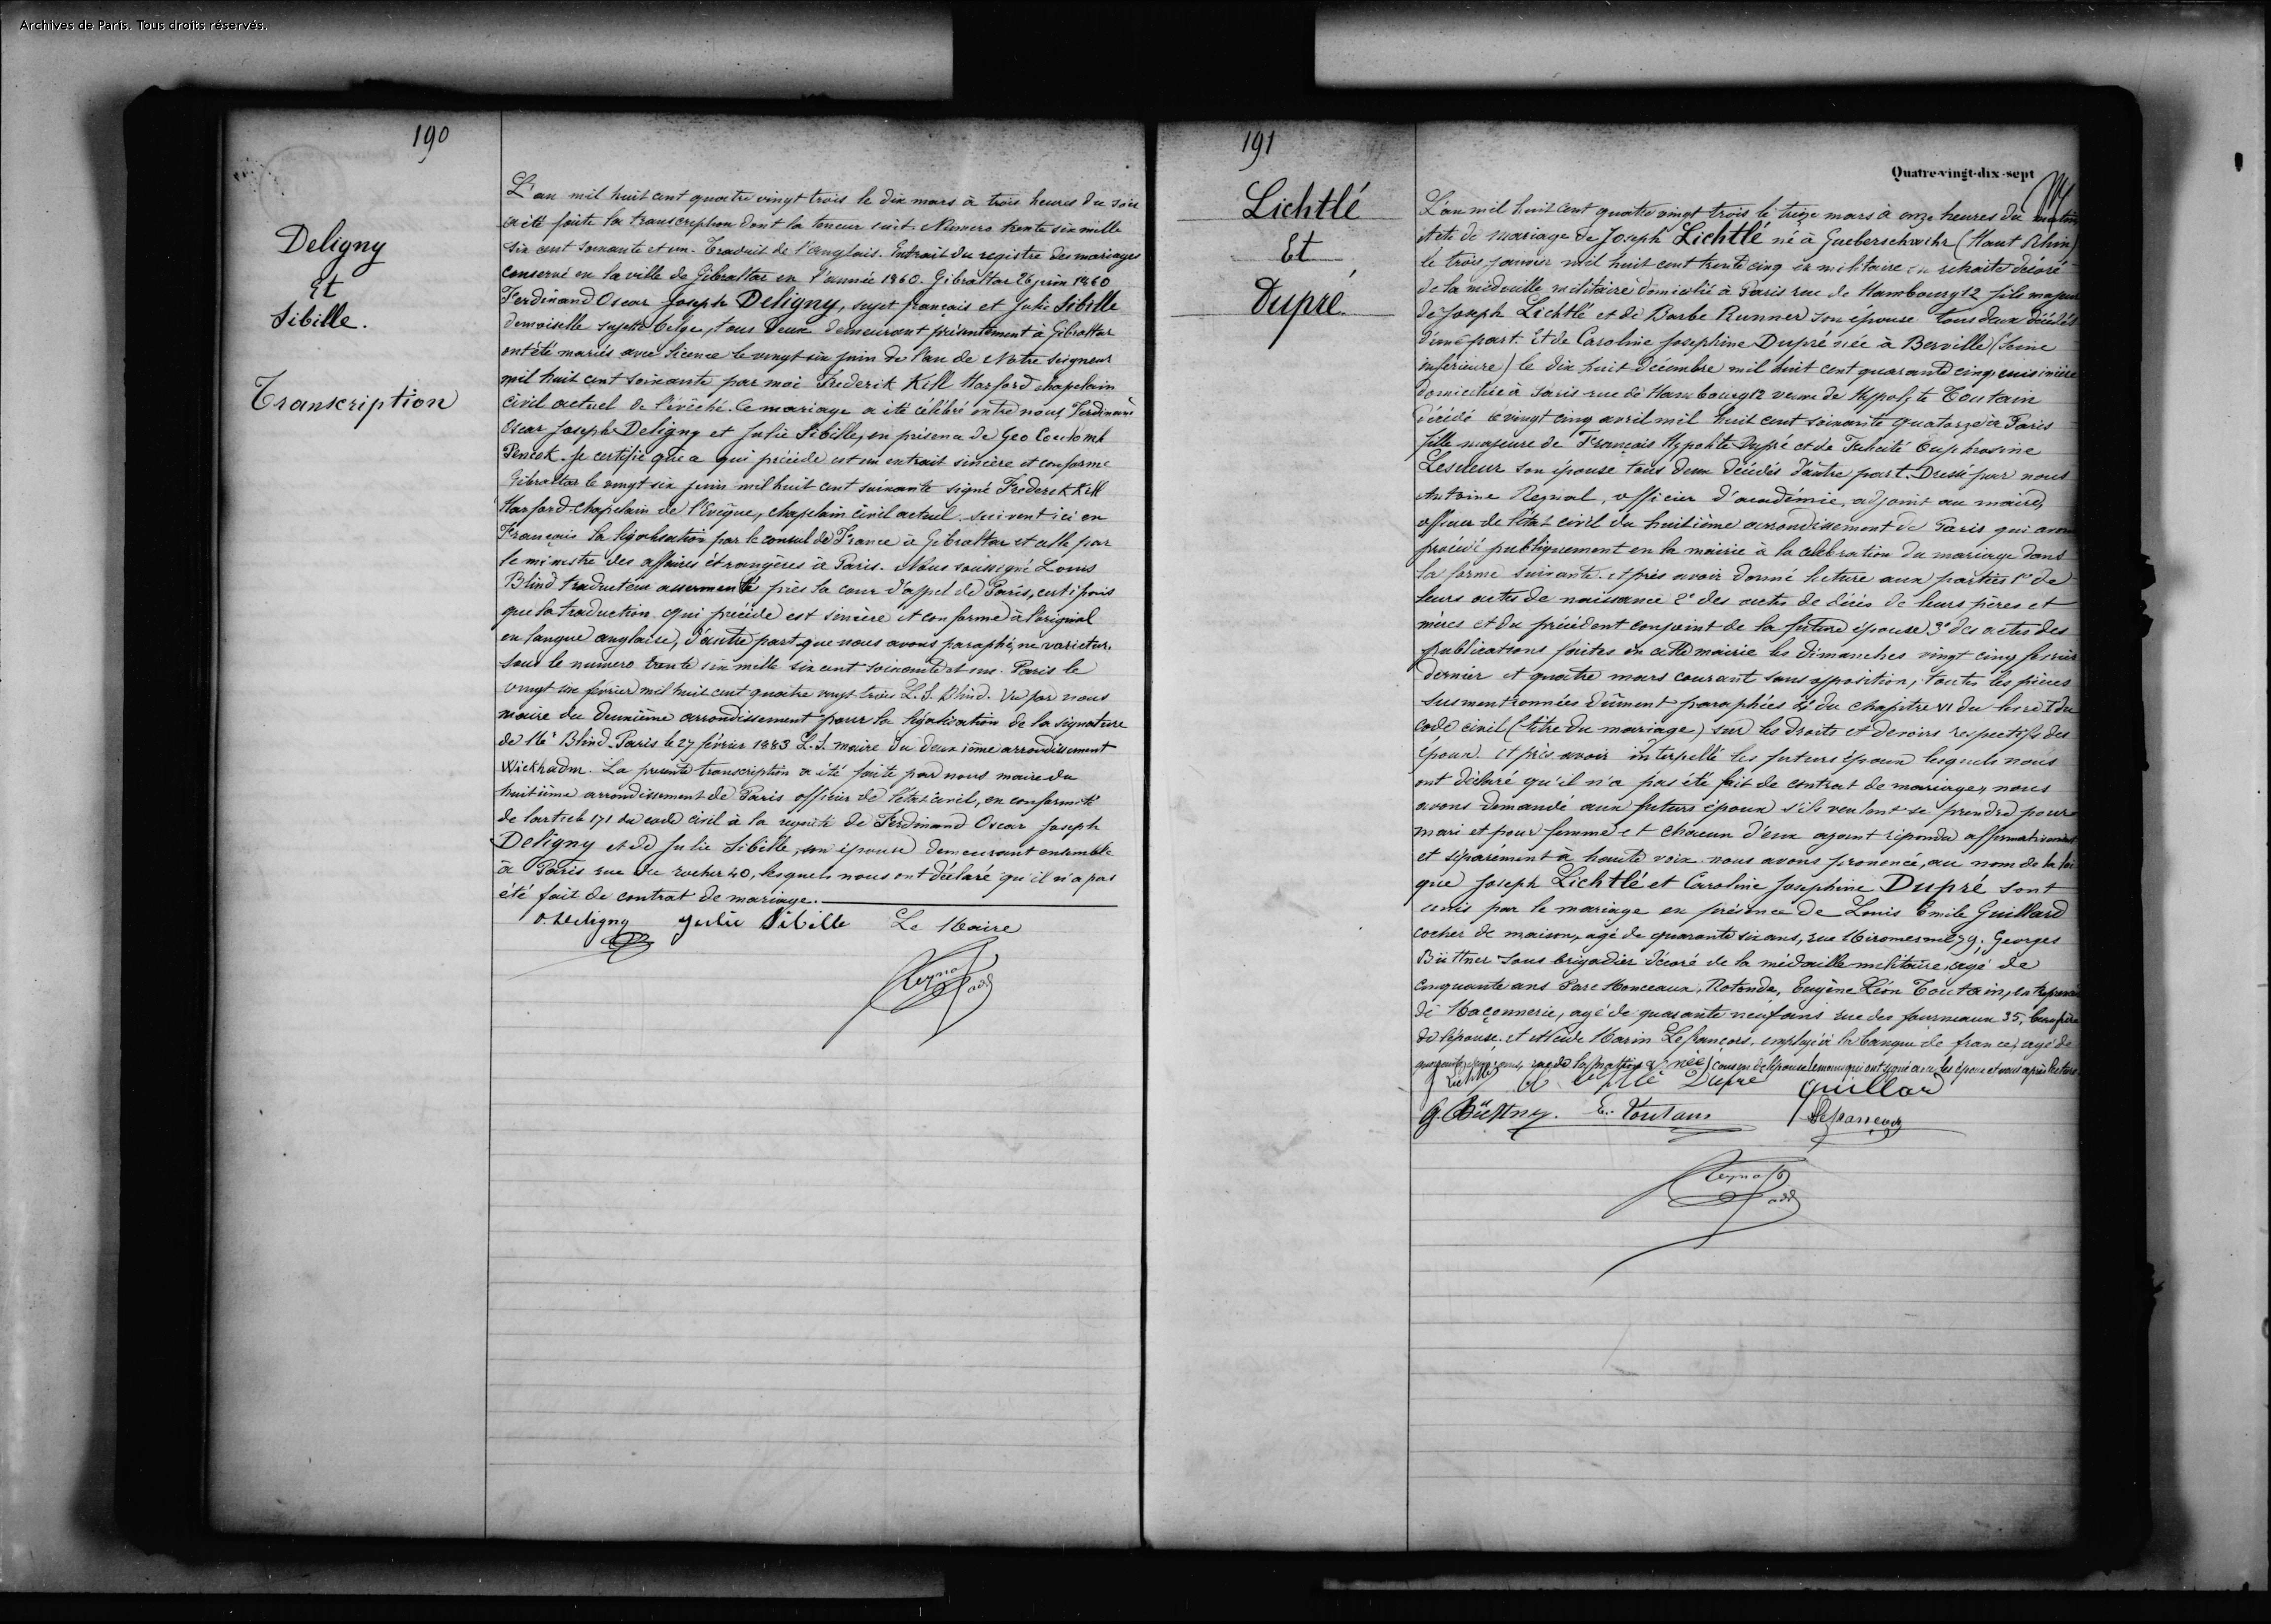 Archives de Paris. Tous droits réservés.
190
Deligny
Et
Sibille.
Transcription
L'an mil huit cent quatre vingt trois le dix mars à trois heures du soir
a été faite la transcription dont la teneur suit. Numero trente six mille
six cent soixante et un. Traduit de l'anglais. Extrait du registre des mariages
conservé en la ville de Gibraltar en l'année 1860. Gibraltar 26 juin 1860
Ferdinand Oscar Joseph Deligny, sujet français et Julie Sibille
demoiselle sujette belge, tous deux demeurant présentement à Gibraltar
ont été mariés avec licence le vingt six juin de l'an de Notre Seigneur
mil huit cent soixante par moi Frederik Kill Harford chapelain
civil actuel de l'évêché. Ce mariage a été célébré entre nous Ferdinand
Oscar Joseph Deligny et Julie Sibille, en présence de Geo
Je certifie que ce qui précède est un extrait sincère et conforme
Gibraltar le vingt six juin mil huit cent soixante signé Frederik Kill
Harford chapelain de l'Evêque, chapelain civil actuel. suivent ici en
Français la légalisation par le consul de France à Gibraltar et celle par
le ministre des affaires étrangères à Paris. Nous soussigné Louis
Blind traducteur assermenté près la cour d'appel de Paris, certifions
que la traduction qui précède est sincère et conforme à l'original
en langue anglaise, d'autre part que nous avons paraphé, ne varietur,
sous le numero trente six mille six cent soixante et un. Paris le
vingt six février mil huit cent quatre vingt trois L. S. Blind. Vu par nous
maire du deuxième arrondissement pour la légalisation de la signature
de Mr Blind. Paris le 27 février 1883 L. S. maire du deuxième arrondissement
La presente transcription a été faite par nous maire du
huitième arrondissement de Paris officier de l'état civil, en conformité
de l'article 171 du code civil à la requête de Ferdinand Oscar Joseph
Deligny et de Julie Sibille, son épouse demeurant ensemble
à Paris rue du rocher 40, lesquels nous ont déclaré qu'il n'a pas
été fait de contrat de mariage.
O. Deligny Julie Sibille Le Maire
191
Lichtlé
Et
Dupré.
Quatre-vingt-dix-sept
L'an mil huit cent quatre vingt trois le treize mars à onze heures du matin
Acte de mariage de Joseph Lichtlé né à Gueberschwihr (Haut Rhin)
le trois janvier mil huit cent trente cinq ex militaire en retraite décoré
de la médaille militaire domicilié à Paris rue de Hambourg 12 fils majeur
de Joseph Lichtlé et de Barbe Runner son épouse tous deux décédés
d'une part. Et de Caroline Josephine Dupré née à Berville (Seine
inférieure) le dix huit décembre mil huit cent quarante cinq, cuisinière
domiciliée à Paris rue de Hambourg 12 veuve de Hypolite Toutain
décédé le vingt cinq avril mil huit cent soixante quatorze à Paris
fille majeure de François Hypolite Dupré et de Felicité Euphrosine
Lesueur son épouse tous deux décédés d'autre part. Dressé par nous
Antoine Regnal, officier d'académie, adjoint au maire,
officier de l'état civil du huitième arrondissement de Paris qui avons
procédé publiquement en la mairie à la célébration du mariage dans
la forme suivante. Après avoir donné lecture aux parties 1° de
leurs actes de naissance 2° des actes de décès de leurs pères et
mères et du précédent conjoint de la future épouse 3° des actes des
publications faites en cette mairie les dimanches vingt cinq février
dernier et quatre mars courant sans opposition, toutes les pièces
susmentionnées dûment paraphées 4° du chapitre VI du livre I du
code civil (titre du mariage) sur les droits et devoirs respectifs des
époux. Après avoir interpellé les futurs époux lesquels nous
ont déclaré qu'il n'a pas été fait de contrat de mariage, nous
avons demandé aux futurs époux s'ils veulent se prendre pour
mari et pour femme et chacun d'eux ayant répondu affirmativement
et séparément à haute voix nous avons prononcé, au nom de la loi
que Joseph Lichtlé et Caroline Josephine Dupré sont
unis par le mariage en présence de Louis Emile Guillard
cocher de maison, agé de quarante six ans, rue Miromesnil 79, Georges
Büttner sous brigadier décoré de la médaille militaire, agé de
cinquante ans Parc Monceaux, Rotonde, Eugène Léon Toutain, entrepreneur
de Maçonnerie, agé de quarante neuf ans rue des fourneaux 35, beau frère
de l'épouse et Marin Lefrançois, employé à la banque de france, agé de
cousin de l'épouse témoins qui ont signé avec les époux et nous après lecture
Lichtlé Dupré Guillard
G. Büttner. E. Toutain Lefrancois